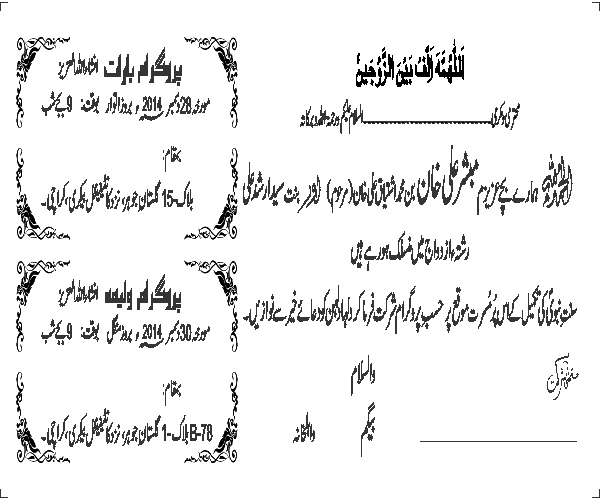 اَللّٰهُمَّ اَلِّفْ بَيْنَ الزَّوْجَيْنِ
محترمی و مکرمی ــــــــــــــــــــ السلام علیکم ورحمۃ اللہ وبرکاتہ
الحمدللہ ہمارے بچے عزیزم مبشر علی خان بن محمد اشتیاق علی خان (مرحوم) اور بنت سید ارشد علی
رشتہء ازدواج میں منسلک ہو رہے ہیں
سنت نبویؐ کی تکمیل کے اس پُر مُسرت موقع پر حسب پروگرام شرکت فرما کر دلہا دلہن کو دعائے خیر سے نوازیں۔
والسلام
بیگم
واہلخانہ
پروگرام بارات انشاءاللہ العزیز
مورخہ 28 دسمبر 2014ء بروز اتوار بوقت: 9 بجے شب
بمقام:
بلاک-15 گلستان جوہر، نزد کانٹینینٹل بیکری، کراچی۔
پروگرام ولیمہ انشاءاللہ العزیز
مورخہ 30 دسمبر 2014ء بروز منگل بوقت: 9 بجے شب
بمقام:
B-78 بلاک-1 گلستان جوہر، نزد کانٹینینٹل بیکری، کراچی۔